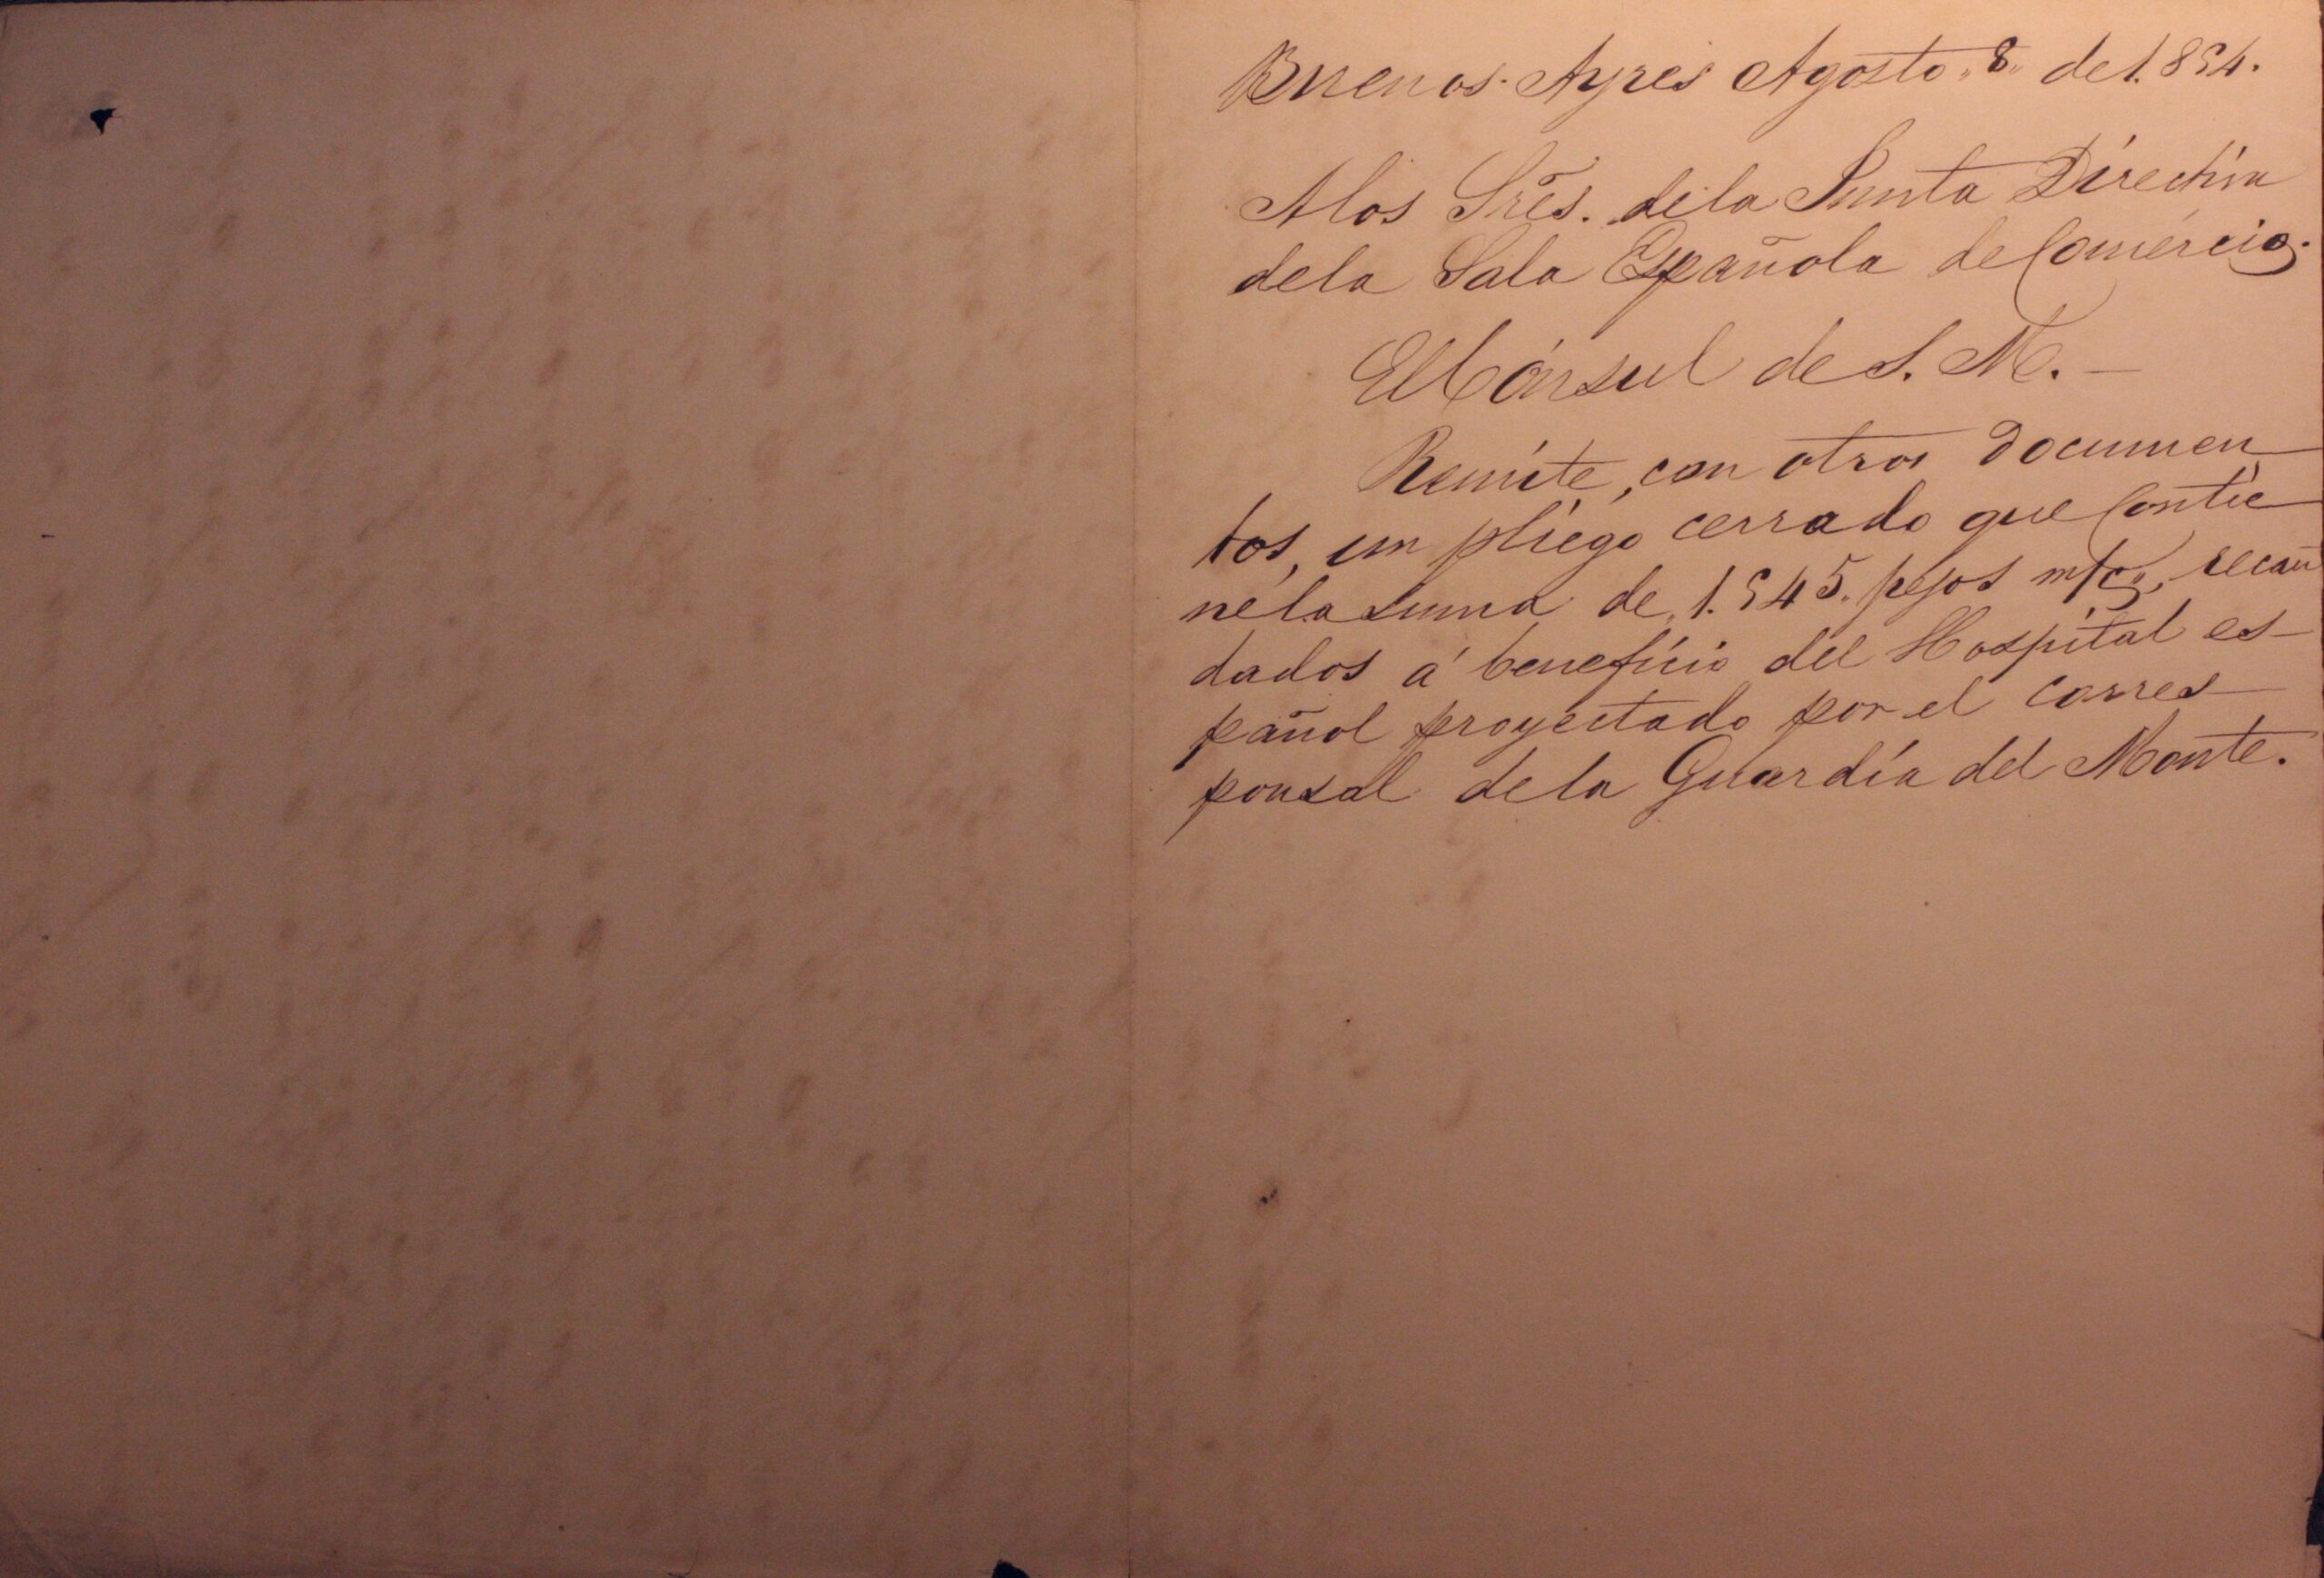 Buenos-Ayres Agosto „8„ de 1.854.
A los Sres. de la Junta Directiva
de la Sala Española de Comercio.
El Cónsul de S. M. —
Remite, con otros documen
tos, un pliego cerrado que Contie
ne la suma de 1.545. pesos m/c, recau
dados á beneficio del Hospital es-
pañol proyectado por el corres-
ponsal de la Guardia del Monte.